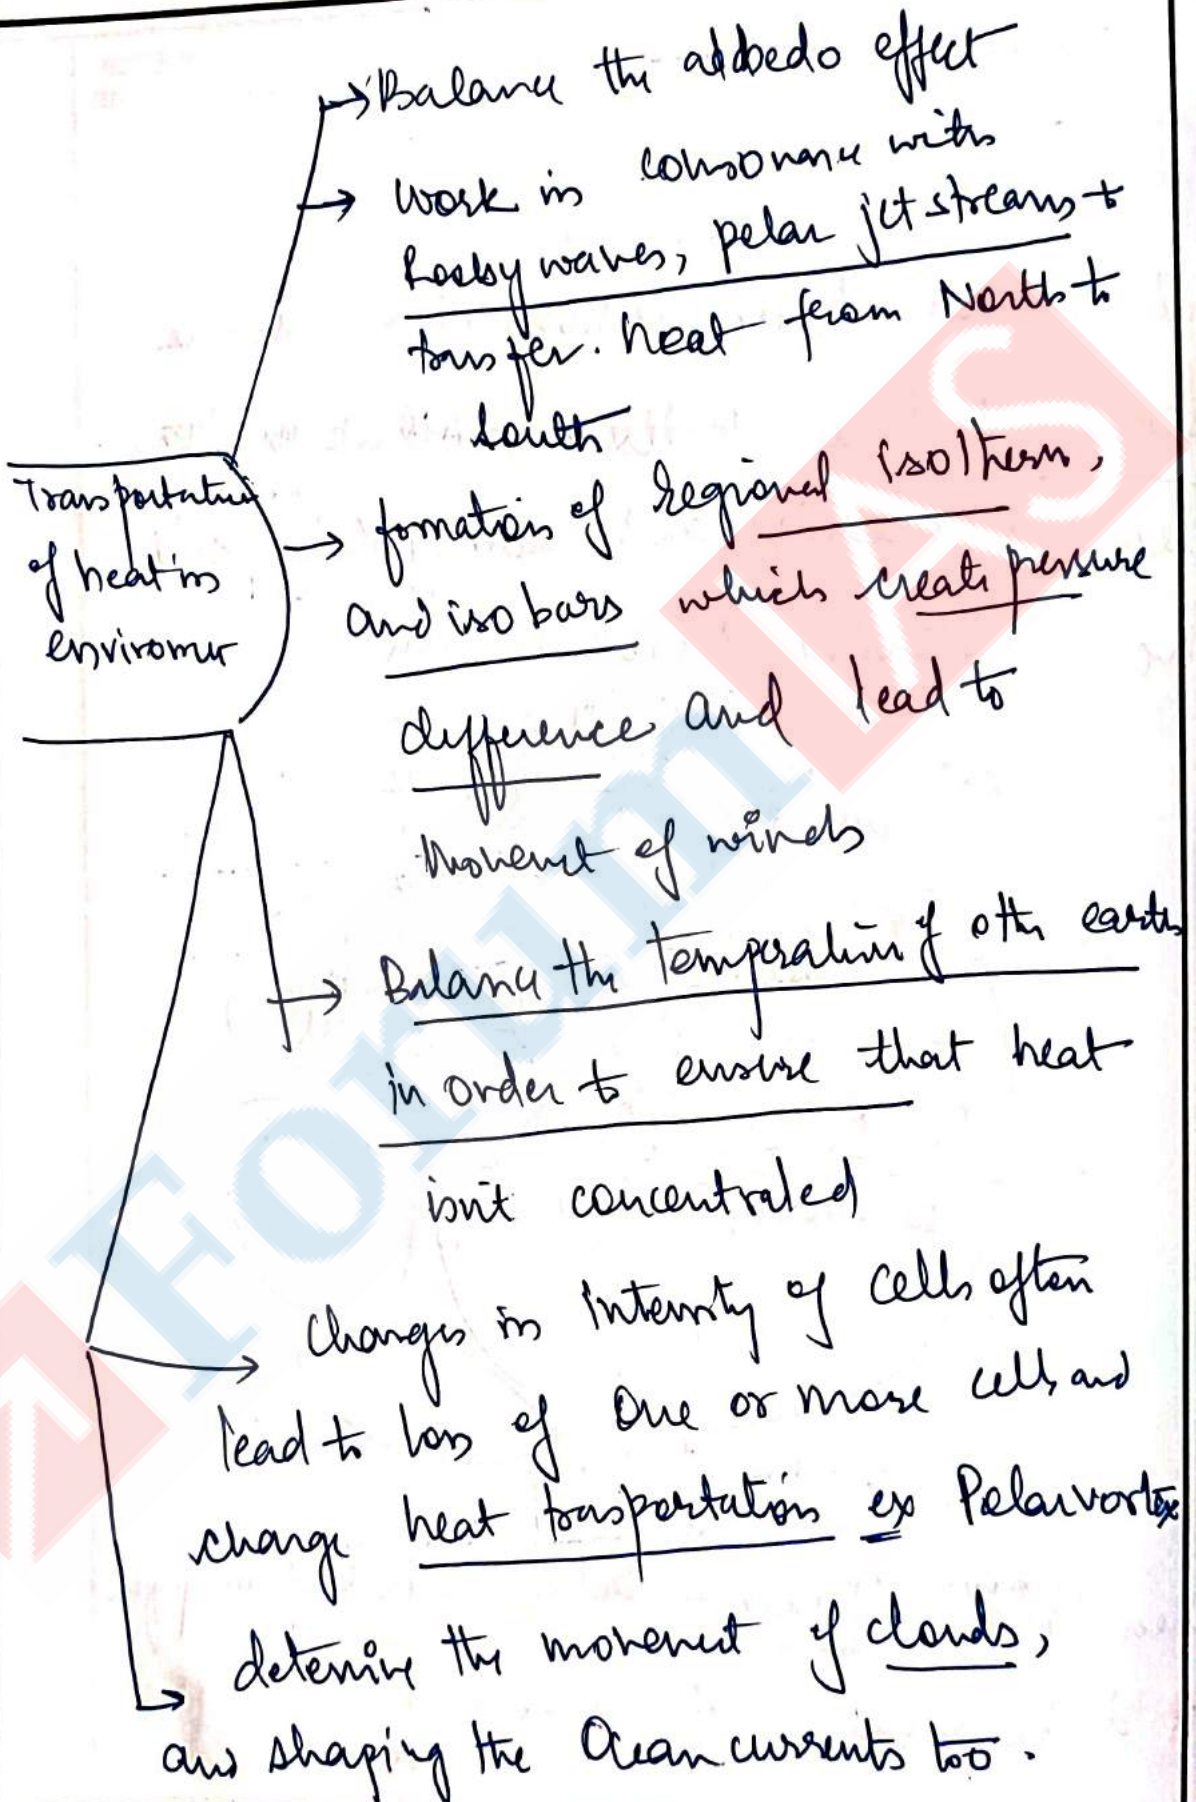 → Balance the aldbedo effect
→ work in consonance with
Rosby waves, polar jet streams to
transfer. heat from North to
south
Transportation
of heat in
enviromer
→ formation of regional isotherm,
and isobars which create pressure
difference and lead to
Movement of winds
→ Balance the temperation of oth earth
in order to ensure that heat
isn't concentrated
→ changes in intensity of cells often
lead to loss of one or more cells and
change heat trasportation ex Polar vortex
→ determine the movement of clouds,
and shaping the Ocean currents too.
Forum IAS